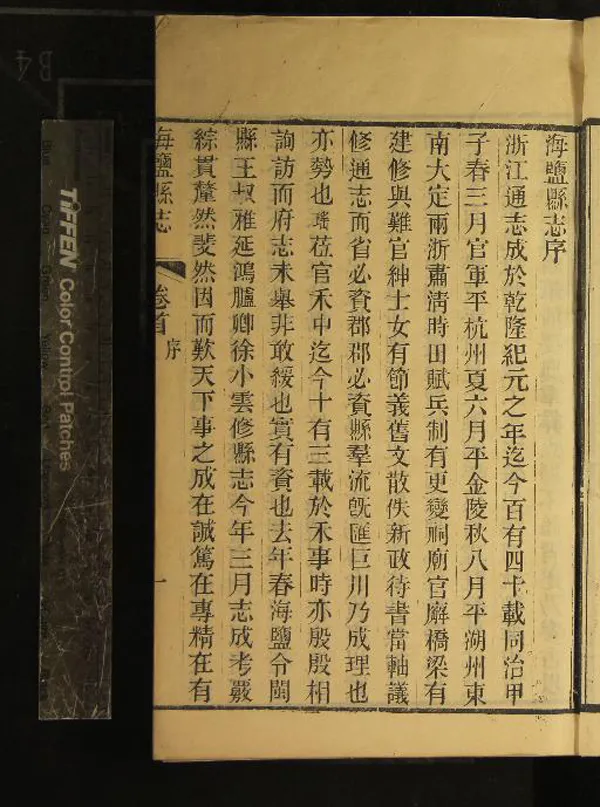 海鹽縣志序
浙江通志成於乾隆紀元之年迄今百有四十載同治甲
子春三月官軍平杭州夏六月平金陵秋八月平湖州東
南大定兩浙肅清時田賦兵制有更變祠廟官廨橋梁有
建修與難官紳士女有節義舊文散佚新政待書當軸議
修通志而省必資郡郡必資縣羣流旣匯巨川乃成理也
亦勢也瑤莅官禾中迄今十有三載於禾事時亦殷殷相
詢訪而府志未舉非敢緩也實有資也去年春海鹽令閩
縣王叔雅延鴻臚卿徐小雲修縣志今年三月志成考覈
綜貫釐然斐然因而歎天下事之成在誠篤在專精在有
海鹽縣志 卷首 序 一
TIFFEN Color Control Patches
B4